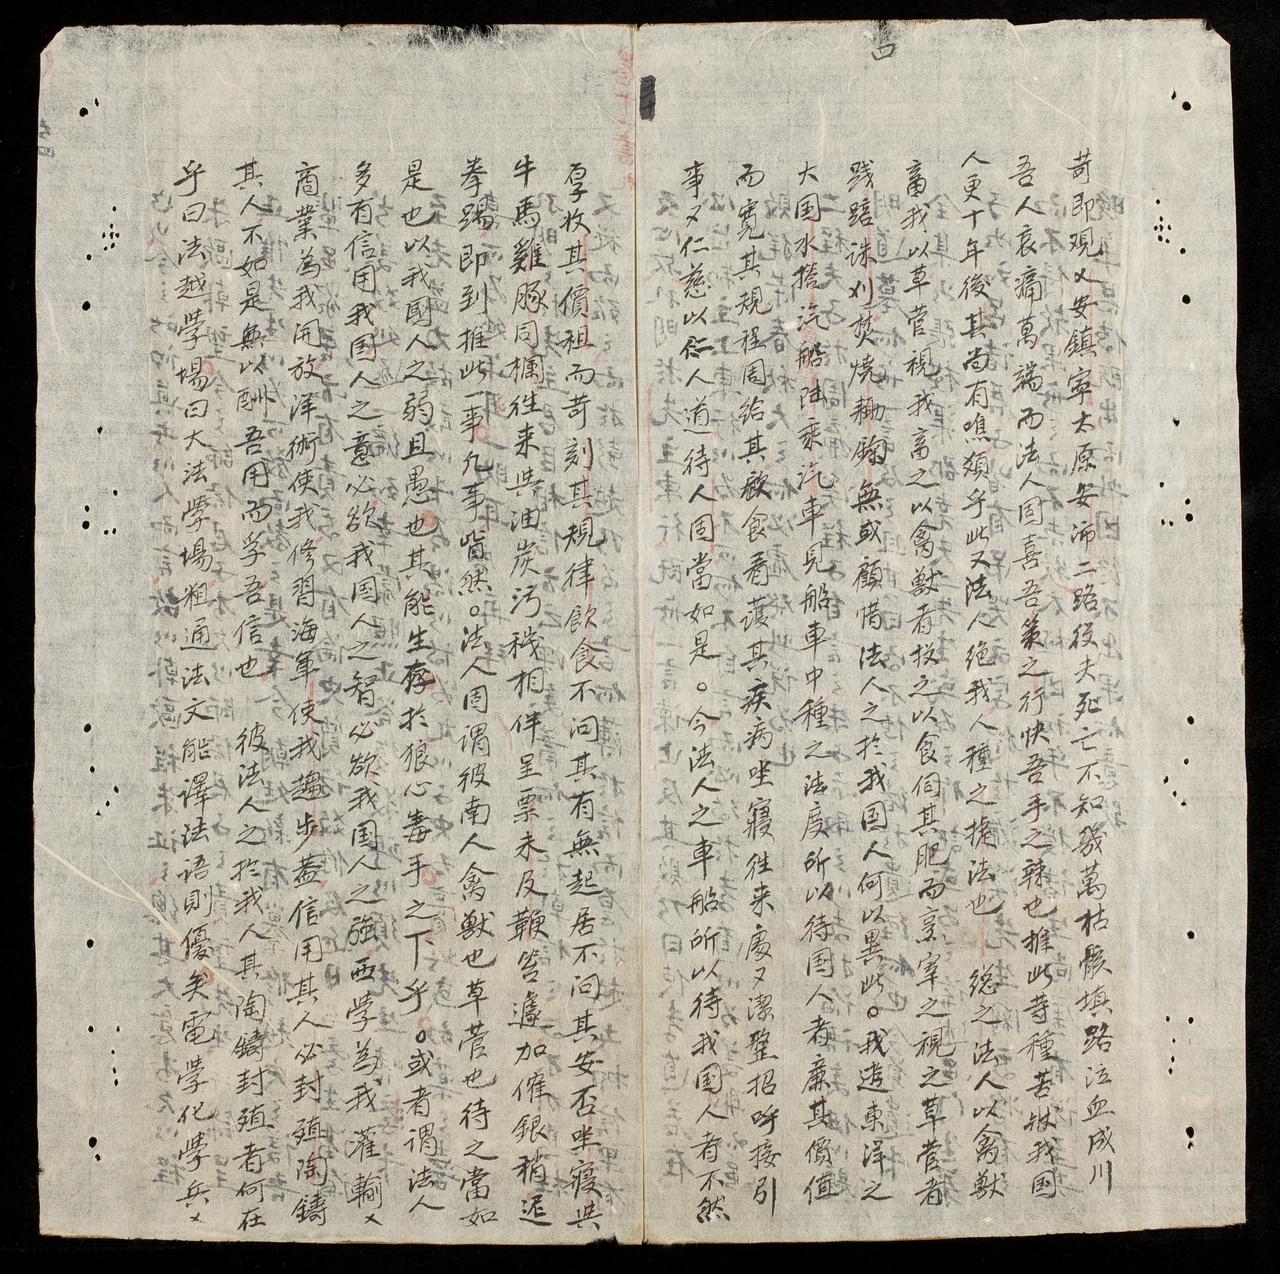 四
苛即观乂安鎮寧太原安沛二路役夫死亡不知幾萬枯骸填路泣血成川
吾人哀痛萬端而法人固喜吾策之行快吾手之辣也推此苛種苦欤我国
人更十年後其尚有噍類乎此又法人絶我人種之措法也 總之法人以禽獸
畜我以草菅視我畜之以禽獸者牧之以食伺其肥而烹宰之視之草菅者
践踏誅刈焚燒耡鋤無或顧惜法人之於我国人何以異此。我遊東洋之
大国水搭汽船陆乘汽車見船車中種之法度所以待国人者廉其價值
而寬其規程周给其飲食看護其疾病坐寢往来處又潔整招呼接引
事又仁慈以仁人道待人固當如是。今法人之車船所以待我国人者不然
厚收其價租而苛刻其規律飲食不问其有無起居不问其安否坐寢与
牛馬雞豚同欄往来与油炭污穢相伴呈票未及鞭笞遽加催銀稍迟
拳踢即到推此一事凢事皆然。法人固谓彼南人禽獸也草菅也待之當如
是也以我國人之弱且愚也其能生存於狼心毒手之下乎。或者谓法人
多有信用我国人之意必欲我国人之智必欲我国人之強西学為我灌輸又
商業為我開放洋術使我修習海軍使我趨步蓋信用其人必封殖陶鑄
其人不如是無以酬吾用而孚吾信也 彼法人之於我人其陶鑄封殖者何在
乎曰法越學場曰大法學場粗通法文能譯法語則優矣電學化學兵又